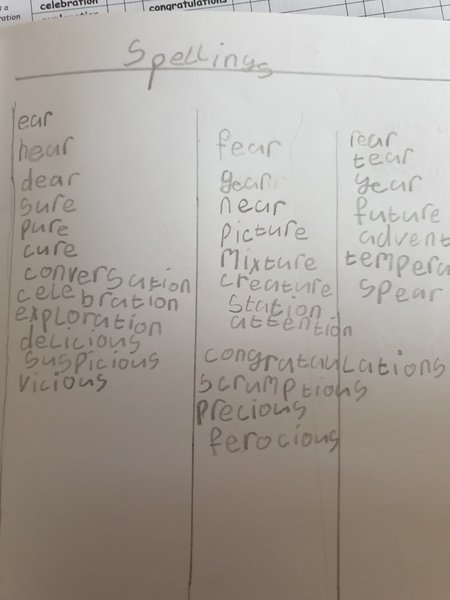 celebration
congratulations
Spellings
ear
hear
dear
sure
pure
cure
conversation
celebration
exploration
delicious
suspicious
vicious
fear
gear
near
picture
mixture
creature
station
attention
congratauLations
scrumptious
precious
ferocious
rear
tear
year
future
advent
tempera
spear